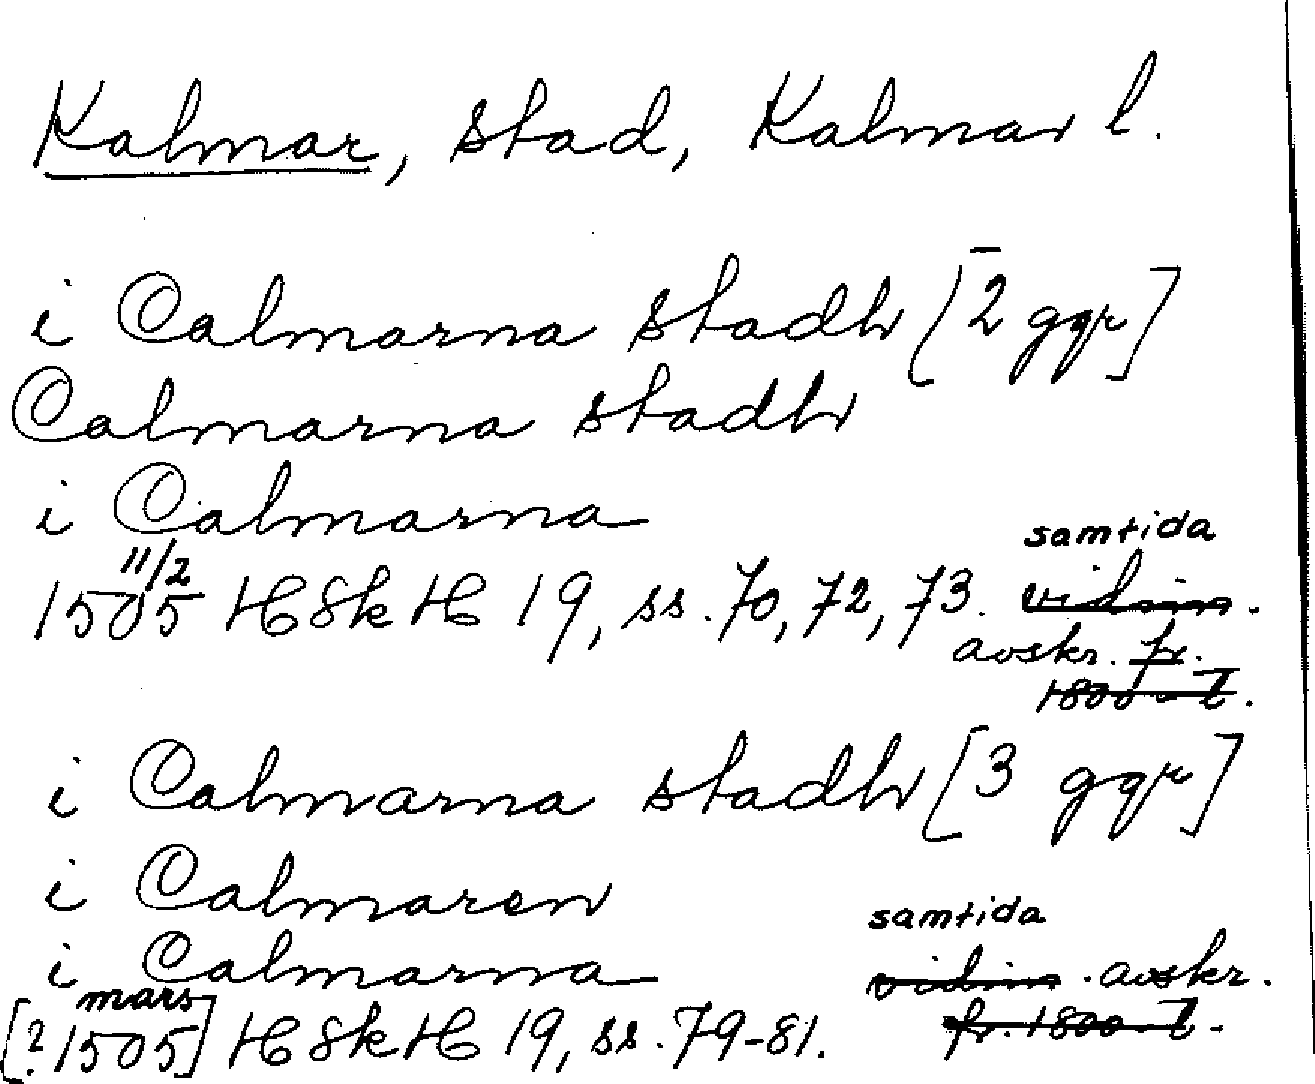 Kalmar, stad, Kalmar l.
i Calmarna stadh [2 ggr]
Calmarna stadh
i Calmarna
samtida
11/2
1505 HSkH 19, ss. 70, 72, 73. vidim.
avskr. fr.
1800-t.
i Calmarna stadh [3 ggr]
i Calmaren
samtida
i Calmarna vidim. avskr.
mars
[? 1505] HSkH 19, ss. 79-81. fr. 1800-t.